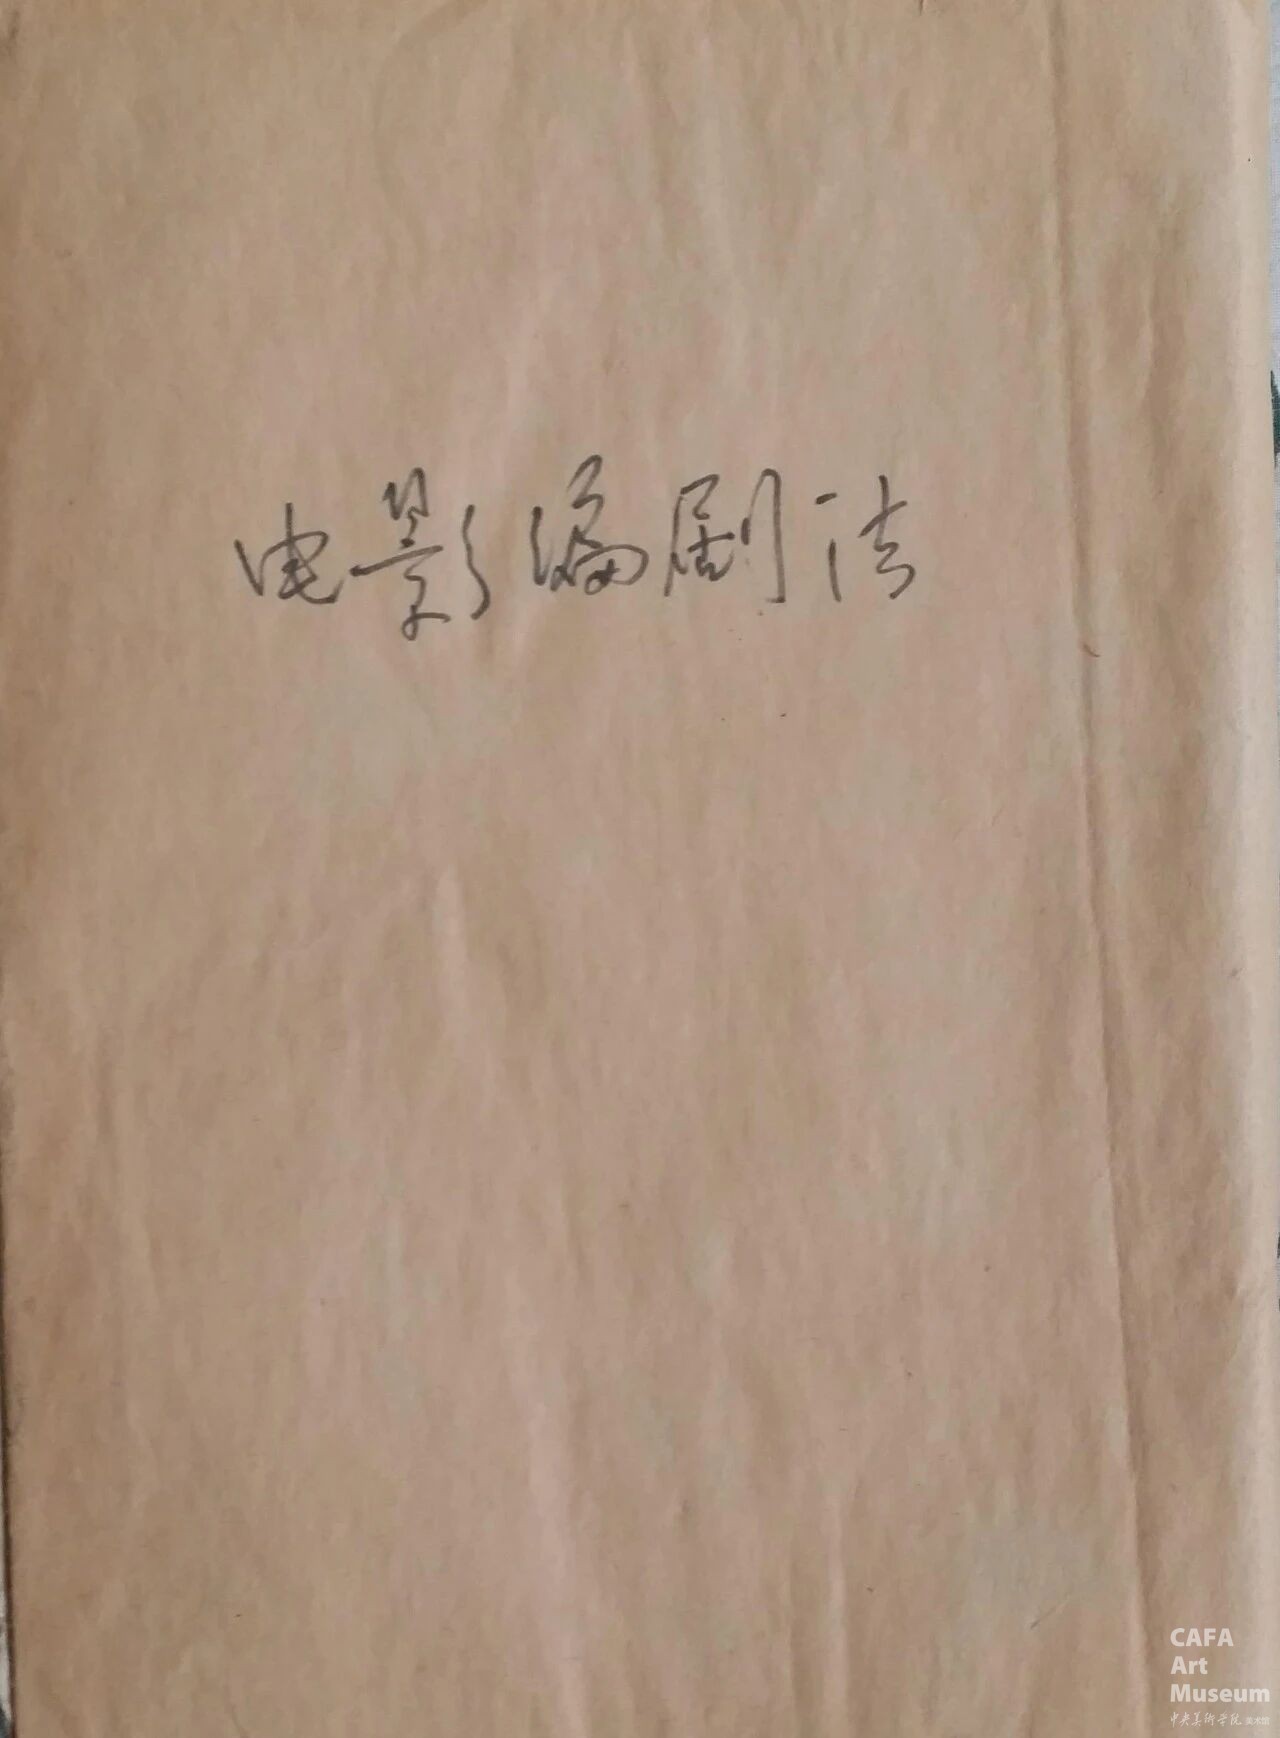 电影编剧法
CAFA
Art
Museum
中央美术学院 美术馆